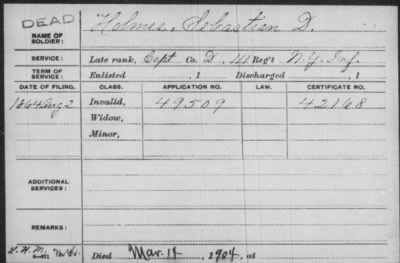 DEAD
NAME OF SOLDIER: Holmes, Sebastian D.
SERVICE: Late rank, Capt Co. D, 111 Reg't N.Y. Inf.
TERM OF SERVICE: Enlisted , 1 Discharged , 1
DATE OF FILING. CLASS. APPLICATION NO. LAW. CERTIFICATE NO.
1864 Aug 2 Invalid, 49509 42168
Widow,
Minor,
ADDITIONAL SERVICES:
REMARKS:
Died Mar. 14, 1904, at